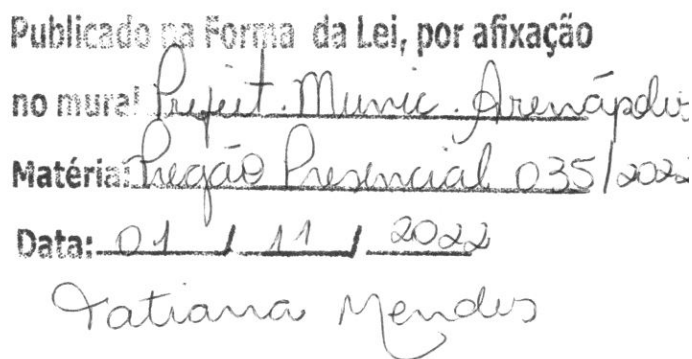 Publicado na Forma da Lei, por afixação
no mural Prefeit. Munic. Arenápolis
Matéria: Pregão Presencial 035/2022
Data: 01 / 11 / 2022
Tatiana Mendes